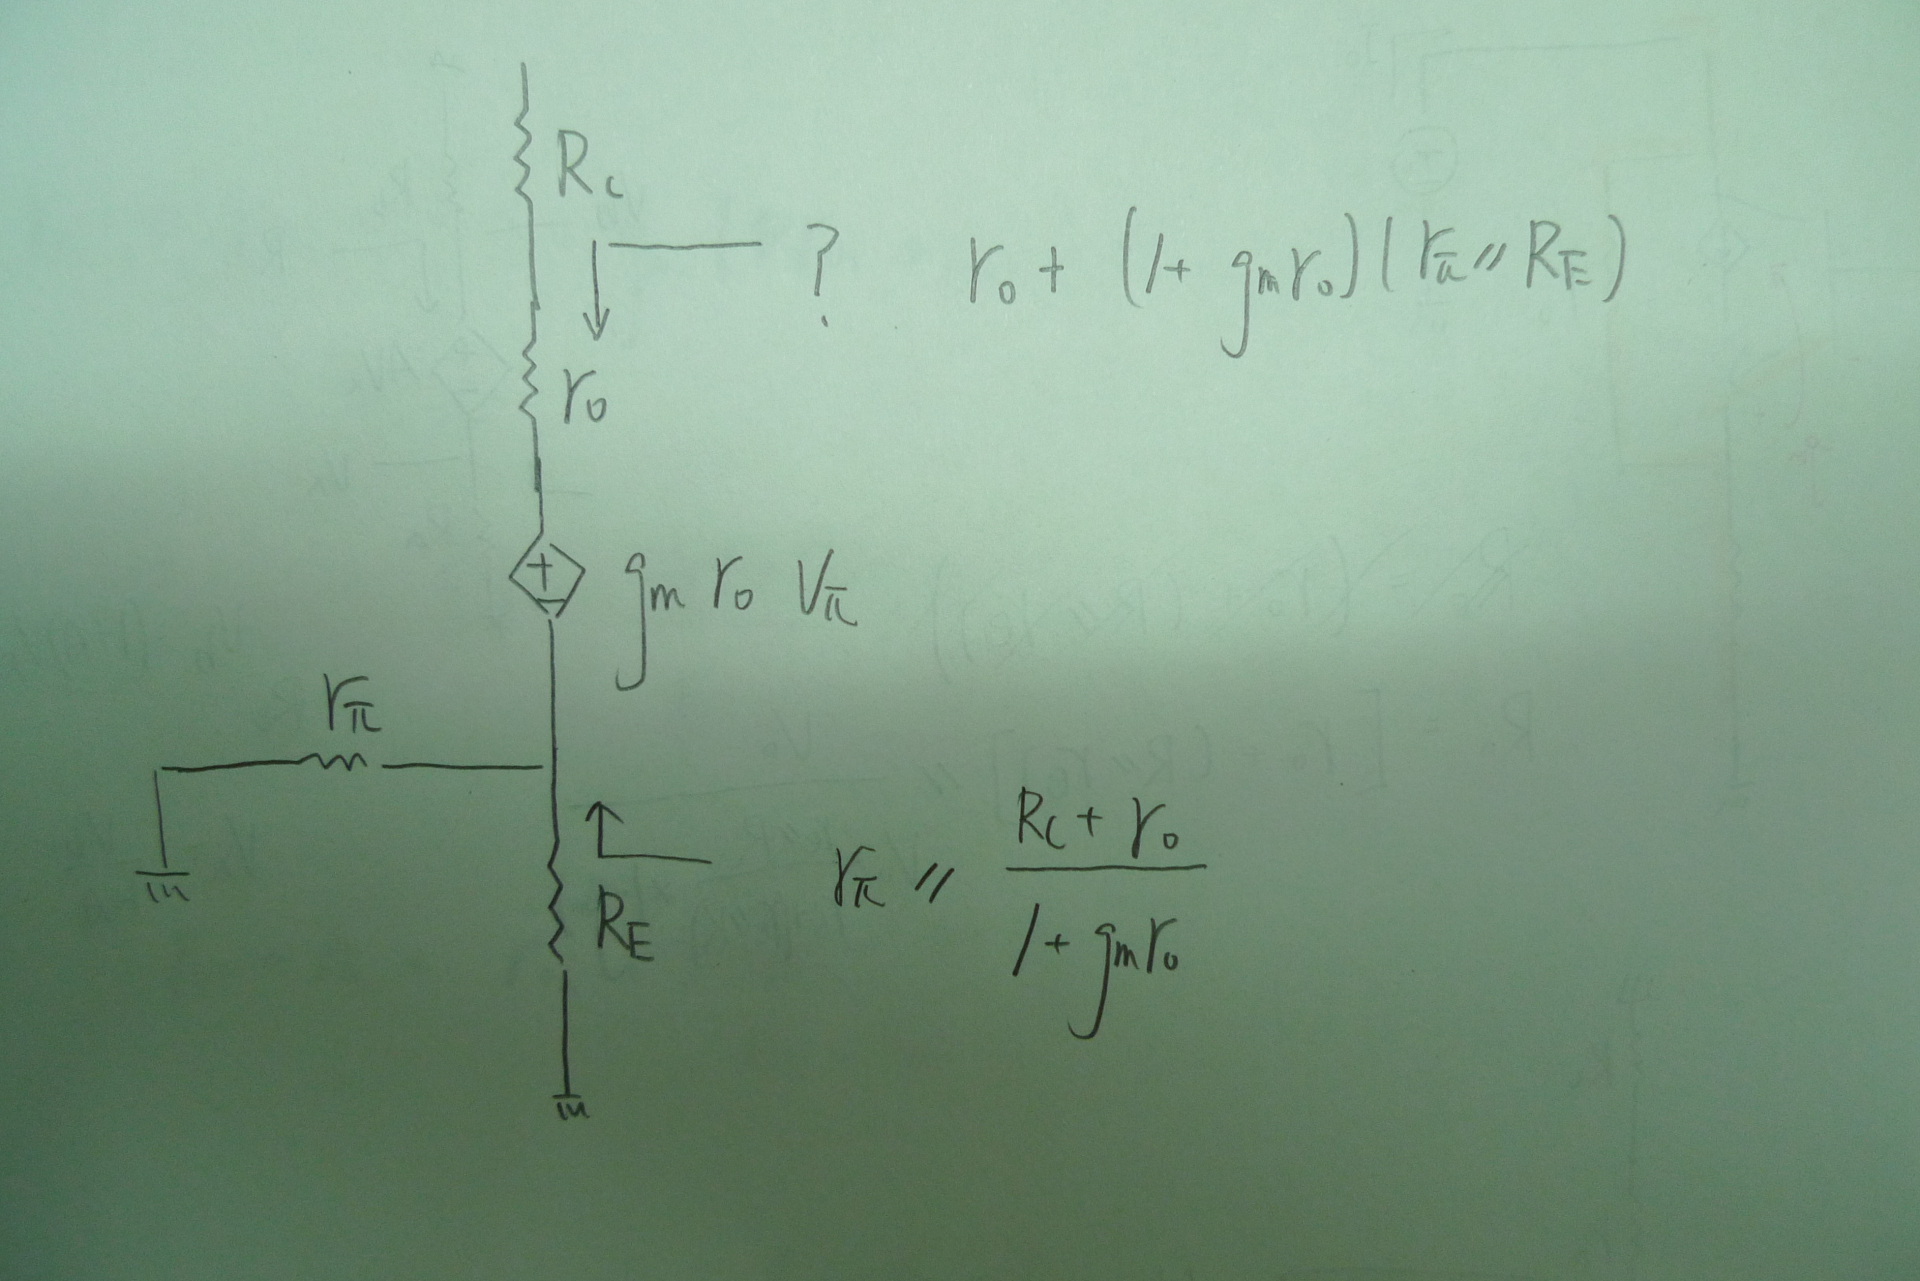 R_C
? r_o + (1 + g_m r_o)(r_π // R_E)
r_o
+
−
g_m r_o V_π
r_π
R_E
r_π // (R_C + r_o) / (1 + g_m r_o)